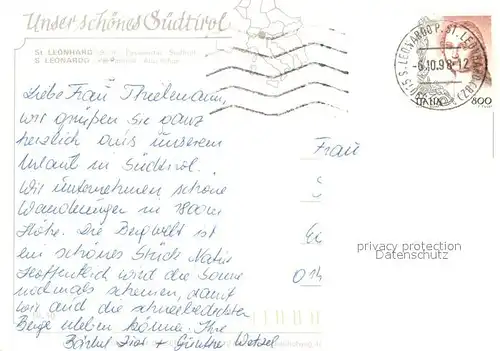 Unser schönes Südtirol
ST. LEONHARD
S. LEONARDO
6.10.98-12
ITALIA 800
Liebe Frau Thielemann,
wir grüßen Sie ganz
herzlich aus unserem
Urlaub in Südtirol.
Wir unternehmen schöne
Wanderungen in 1800 m
Höhe. Die Bergwelt ist
ein schönes Stück Natur
Hoffentlich wird die Sonne
nochmals scheinen, damit
wir auf die schneebedeckten
Berge sehen können. Ihre
Bärbel + Günther Wetzel
Frau
privacy protection
Datenschutz